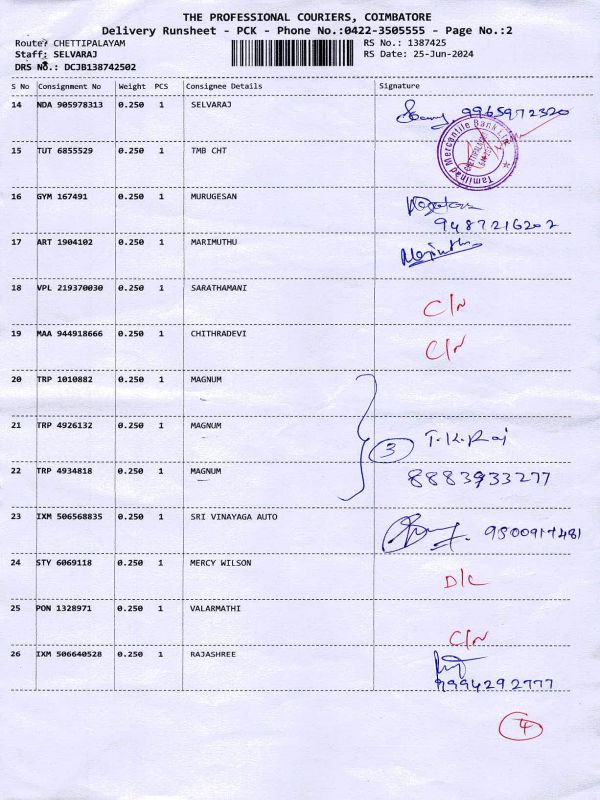 THE PROFESSIONAL COURIERS, COIMBATORE
Delivery Runsheet - PCK - Phone No.:0422-3505555 - Page No.:2
Route? CHETTIPALAYAM RS No.: 1387425
Staff: SELVARAJ RS Date: 25-Jun-2024
DRS No.: DCJB138742502
S No Consignment No Weight PCS Consignee Details Signature
14 NDA 905978313 0.250 1 SELVARAJ 9965972320
Tamilnad Mercantile Bank Ltd
CHETTIPALAYAM
15 TUT 6855529 0.250 1 TMB CHT
16 GYM 167491 0.250 1 MURUGESAN
9487216202
17 ART 1904102 0.250 1 MARIMUTHU Marimuthu
18 VPL 219370030 0.250 1 SARATHAMANI
C/N
19 MAA 944918666 0.250 1 CHITHRADEVI
C/N
20 TRP 1010882 0.250 1 MAGNUM
21 TRP 4926132 0.250 1 MAGNUM
3 T.K.Raj
22 TRP 4934818 0.250 1 MAGNUM 8883933277
23 IXM 506568835 0.250 1 SRI VINAYAGA AUTO
9500917481
24 STY 6069118 0.250 1 MERCY WILSON
D/C
25 PON 1328971 0.250 1 VALARMATHI
C/N
26 IXM 506640528 0.250 1 RAJASHREE
9994292777
4